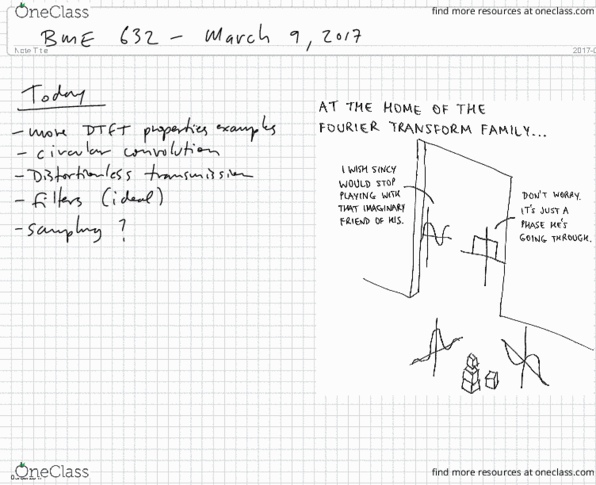 OneClass
find more resources at oneclass.com
BME 632 - March 9, 2017
Note Title
Today
- more DTFT properties examples
- circular convolution
- Distortionless transmission
- filters (ideal)
- sampling ?
AT THE HOME OF THE
FOURIER TRANSFORM FAMILY...
I WISH SINCY
WOULD STOP
PLAYING WITH
THAT IMAGINARY
FRIEND OF HIS.
DON'T WORRY.
IT'S JUST A
PHASE HE'S
GOING THROUGH.
OneClass
find more resources at oneclass.com